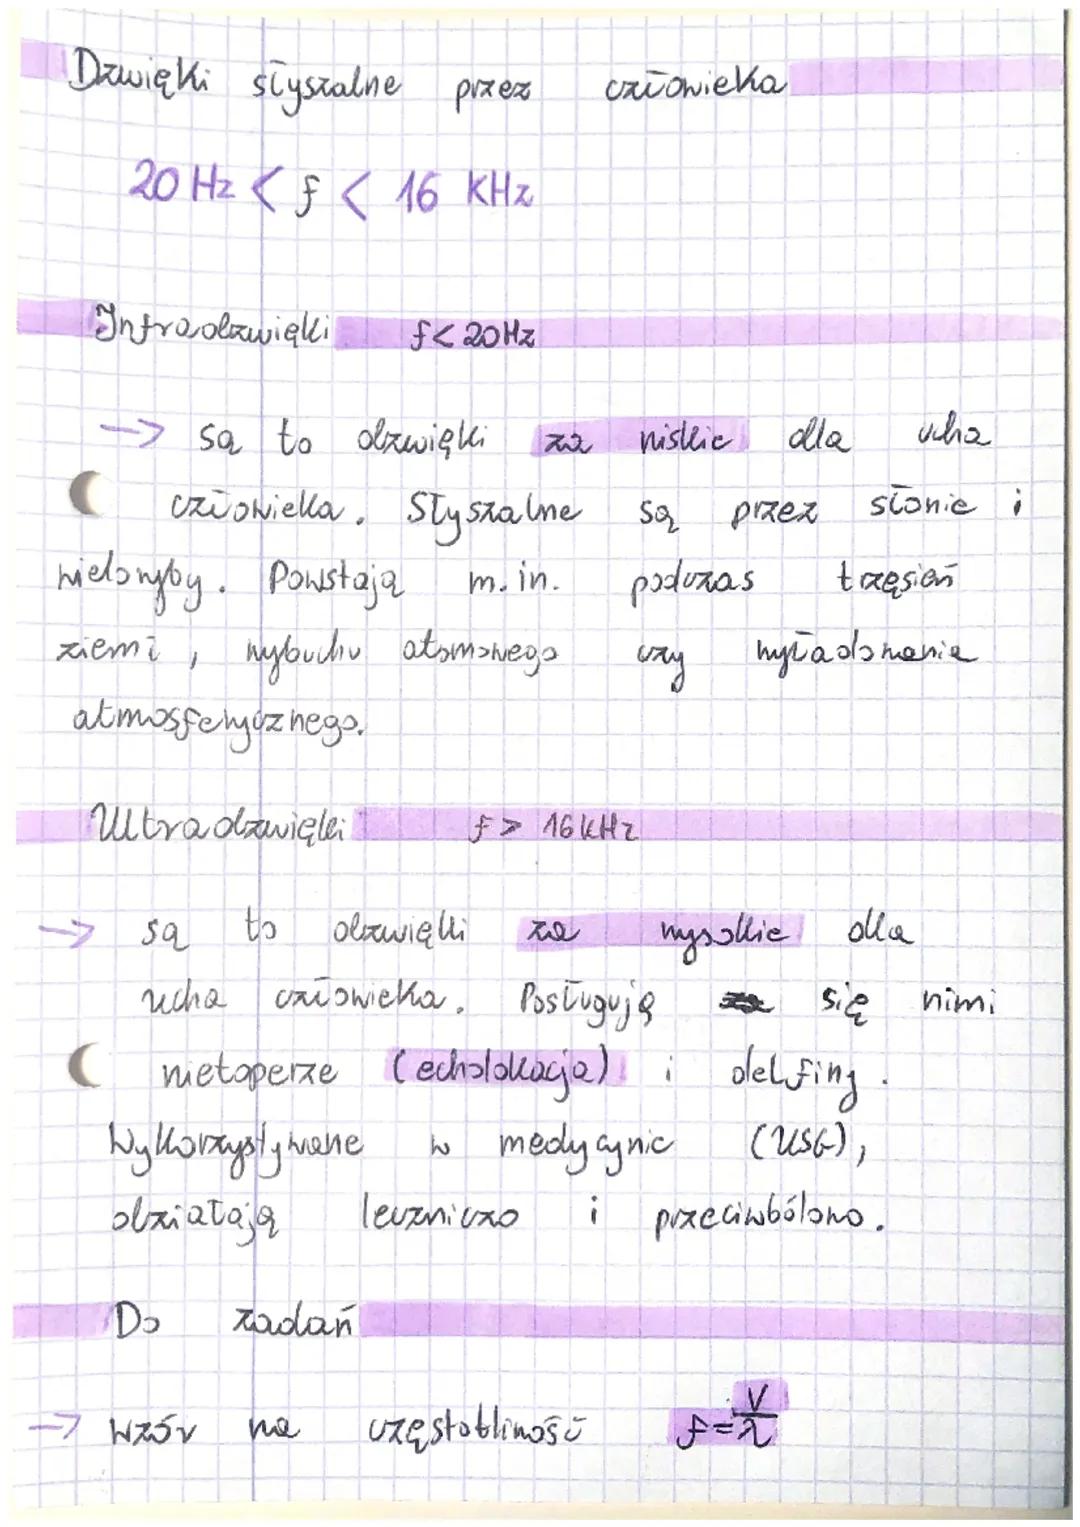 Dzwięki słyszalne przez człowieka
20 Hz < f < 16 KHz
Infradzwięki f < 20Hz
→ są to dzwięki za niskie dla ucha
człowieka. Słyszalne są przez słonie i
wieloryby. Powstają m.in. podczas trzęsień
ziemi, wybuchu atomowego czy wyładowania
atmosferycznego.
Ultradzwięki f > 16kHz
→ są to dzwięki za wysokie dla
ucha człowieka. Posługują się nimi
nietoperze (echolokacja) i delfiny.
Wykorzystywane w medycynie (USG),
działają leczniczo i przeciwbólowo.
Do zadań
→ wzór na częstotliwość f = V/λ